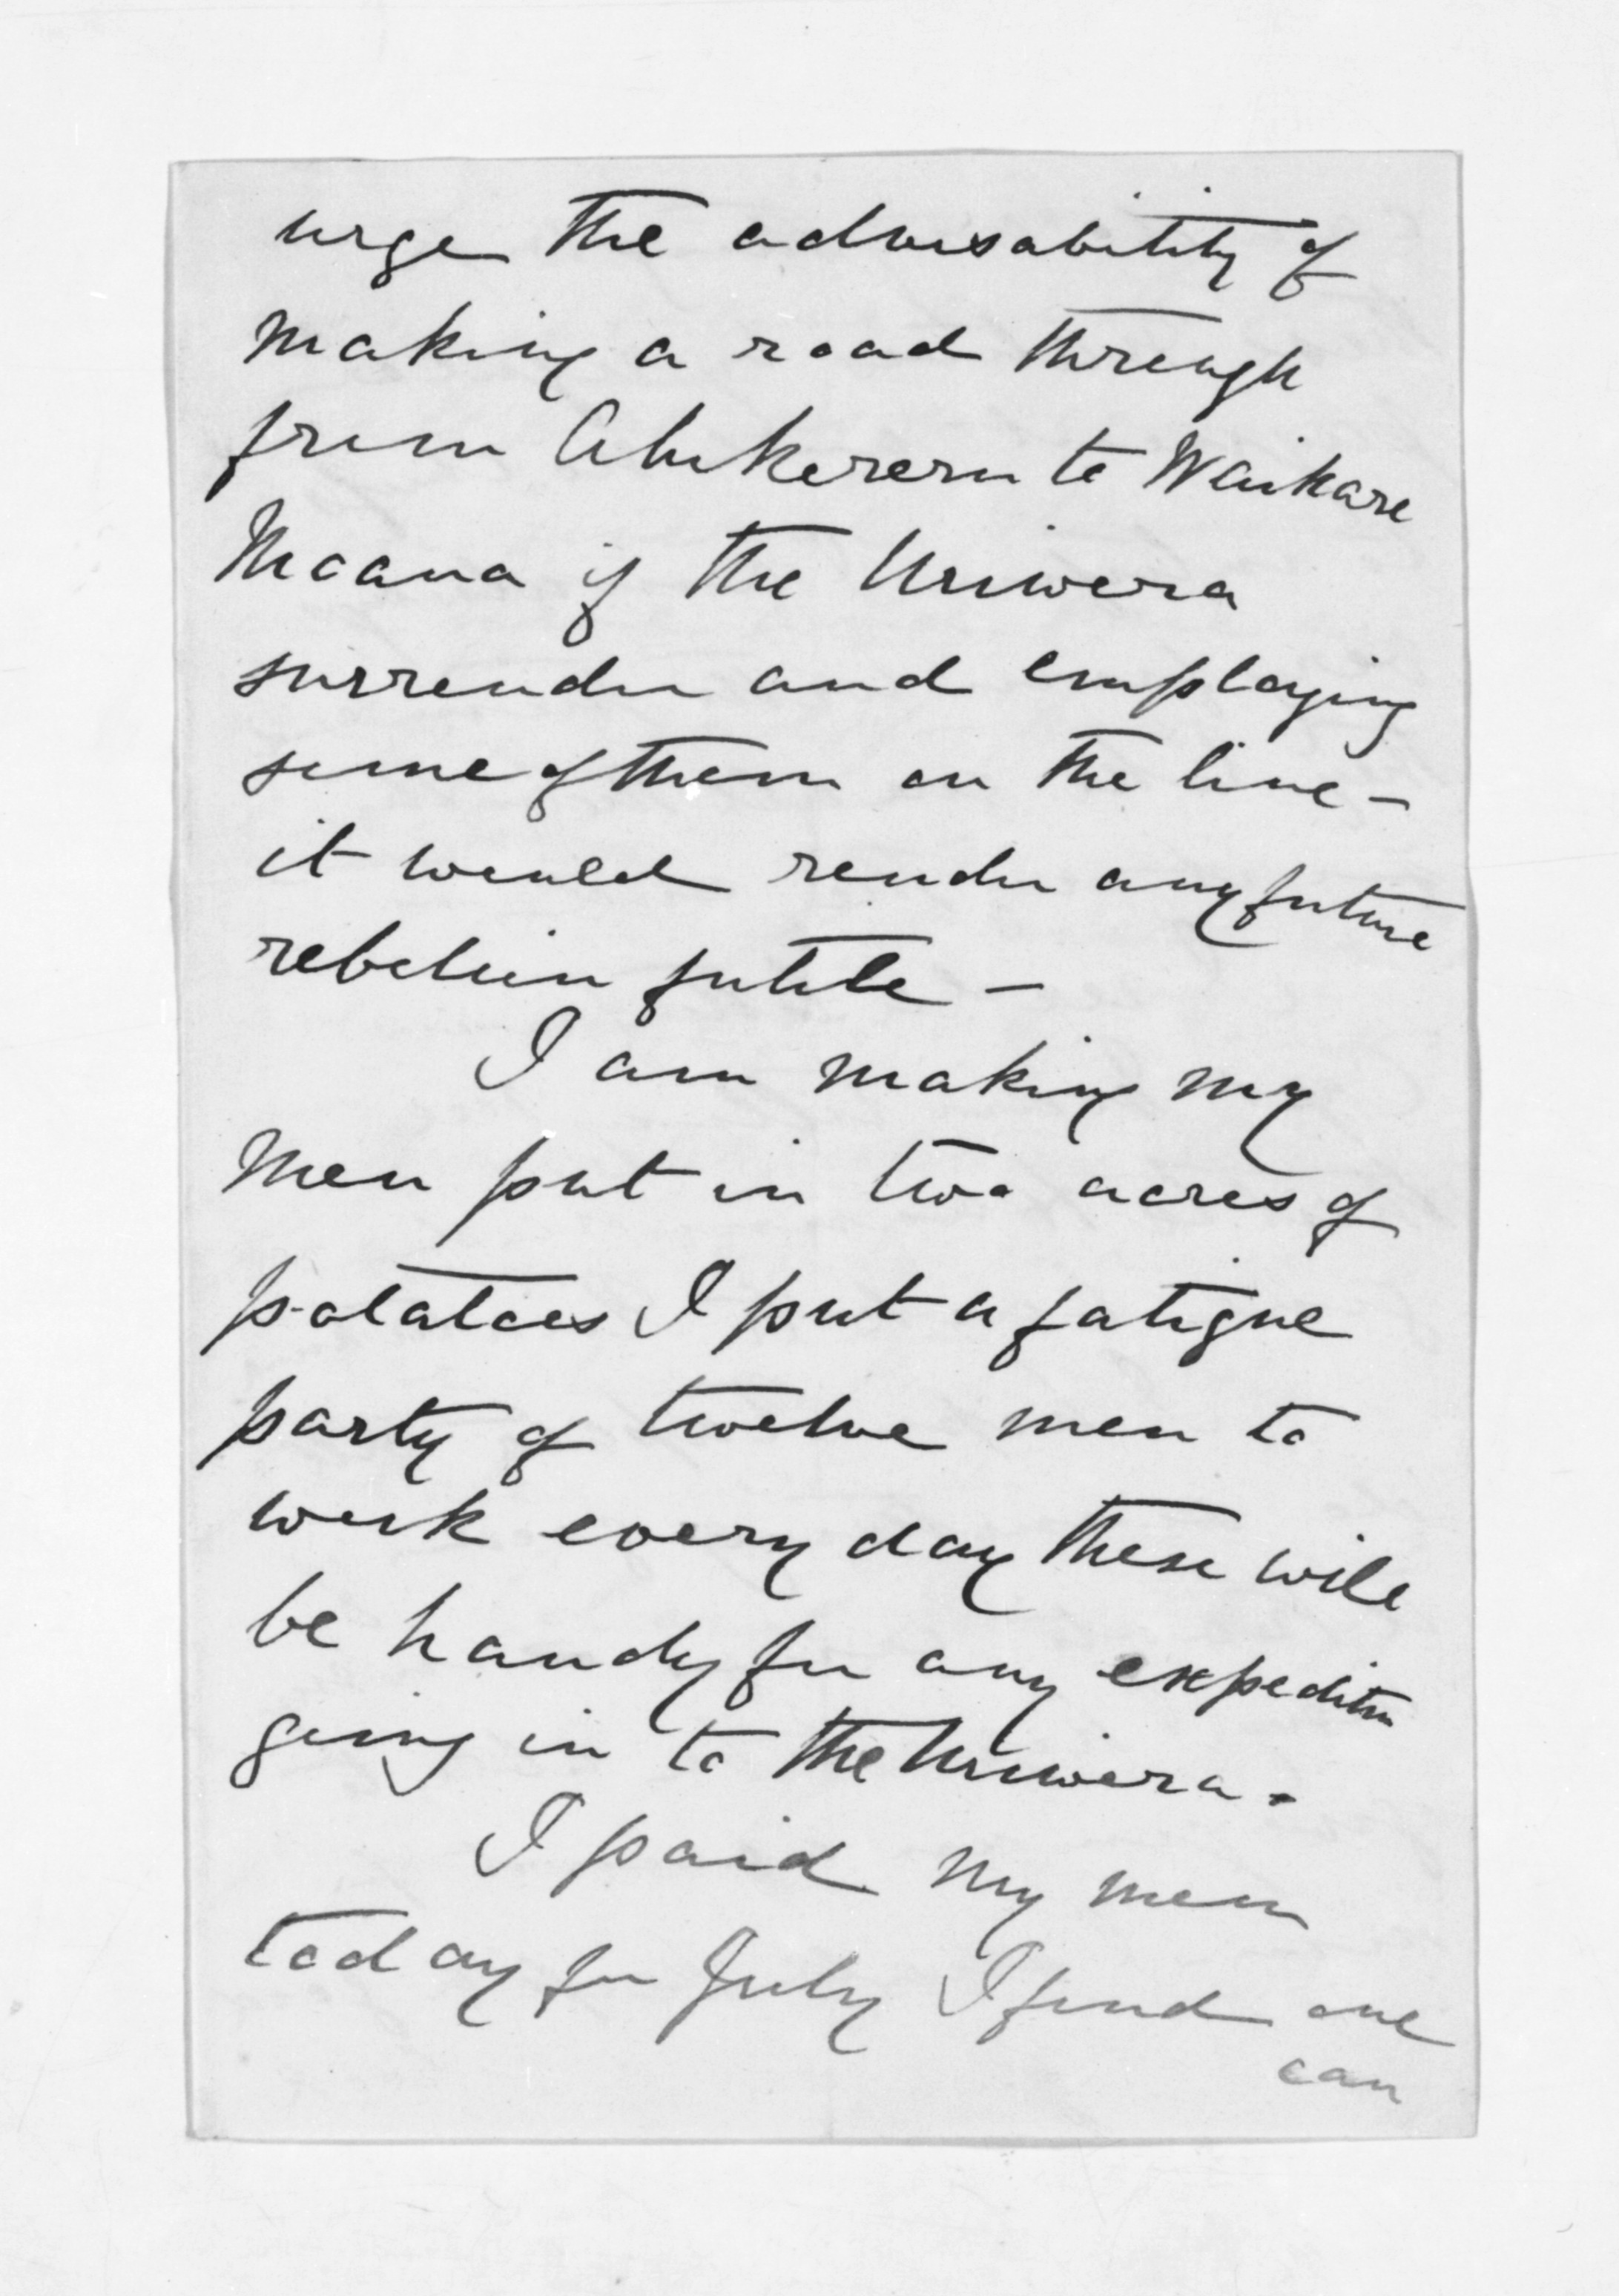 urge the advisability of
making a road through
from Ahikereru to Waikare
Moana if the Uriwera
surrender and employing
some of them on the line –
it would render any future
rebelion futile –
I am making my
men put in two acres of
potatoes I put a fatigue
party of twelve men to
work every day these will
be handy for any expedition
going in to the Uriwera.
I paid my men
today for July I find one
can